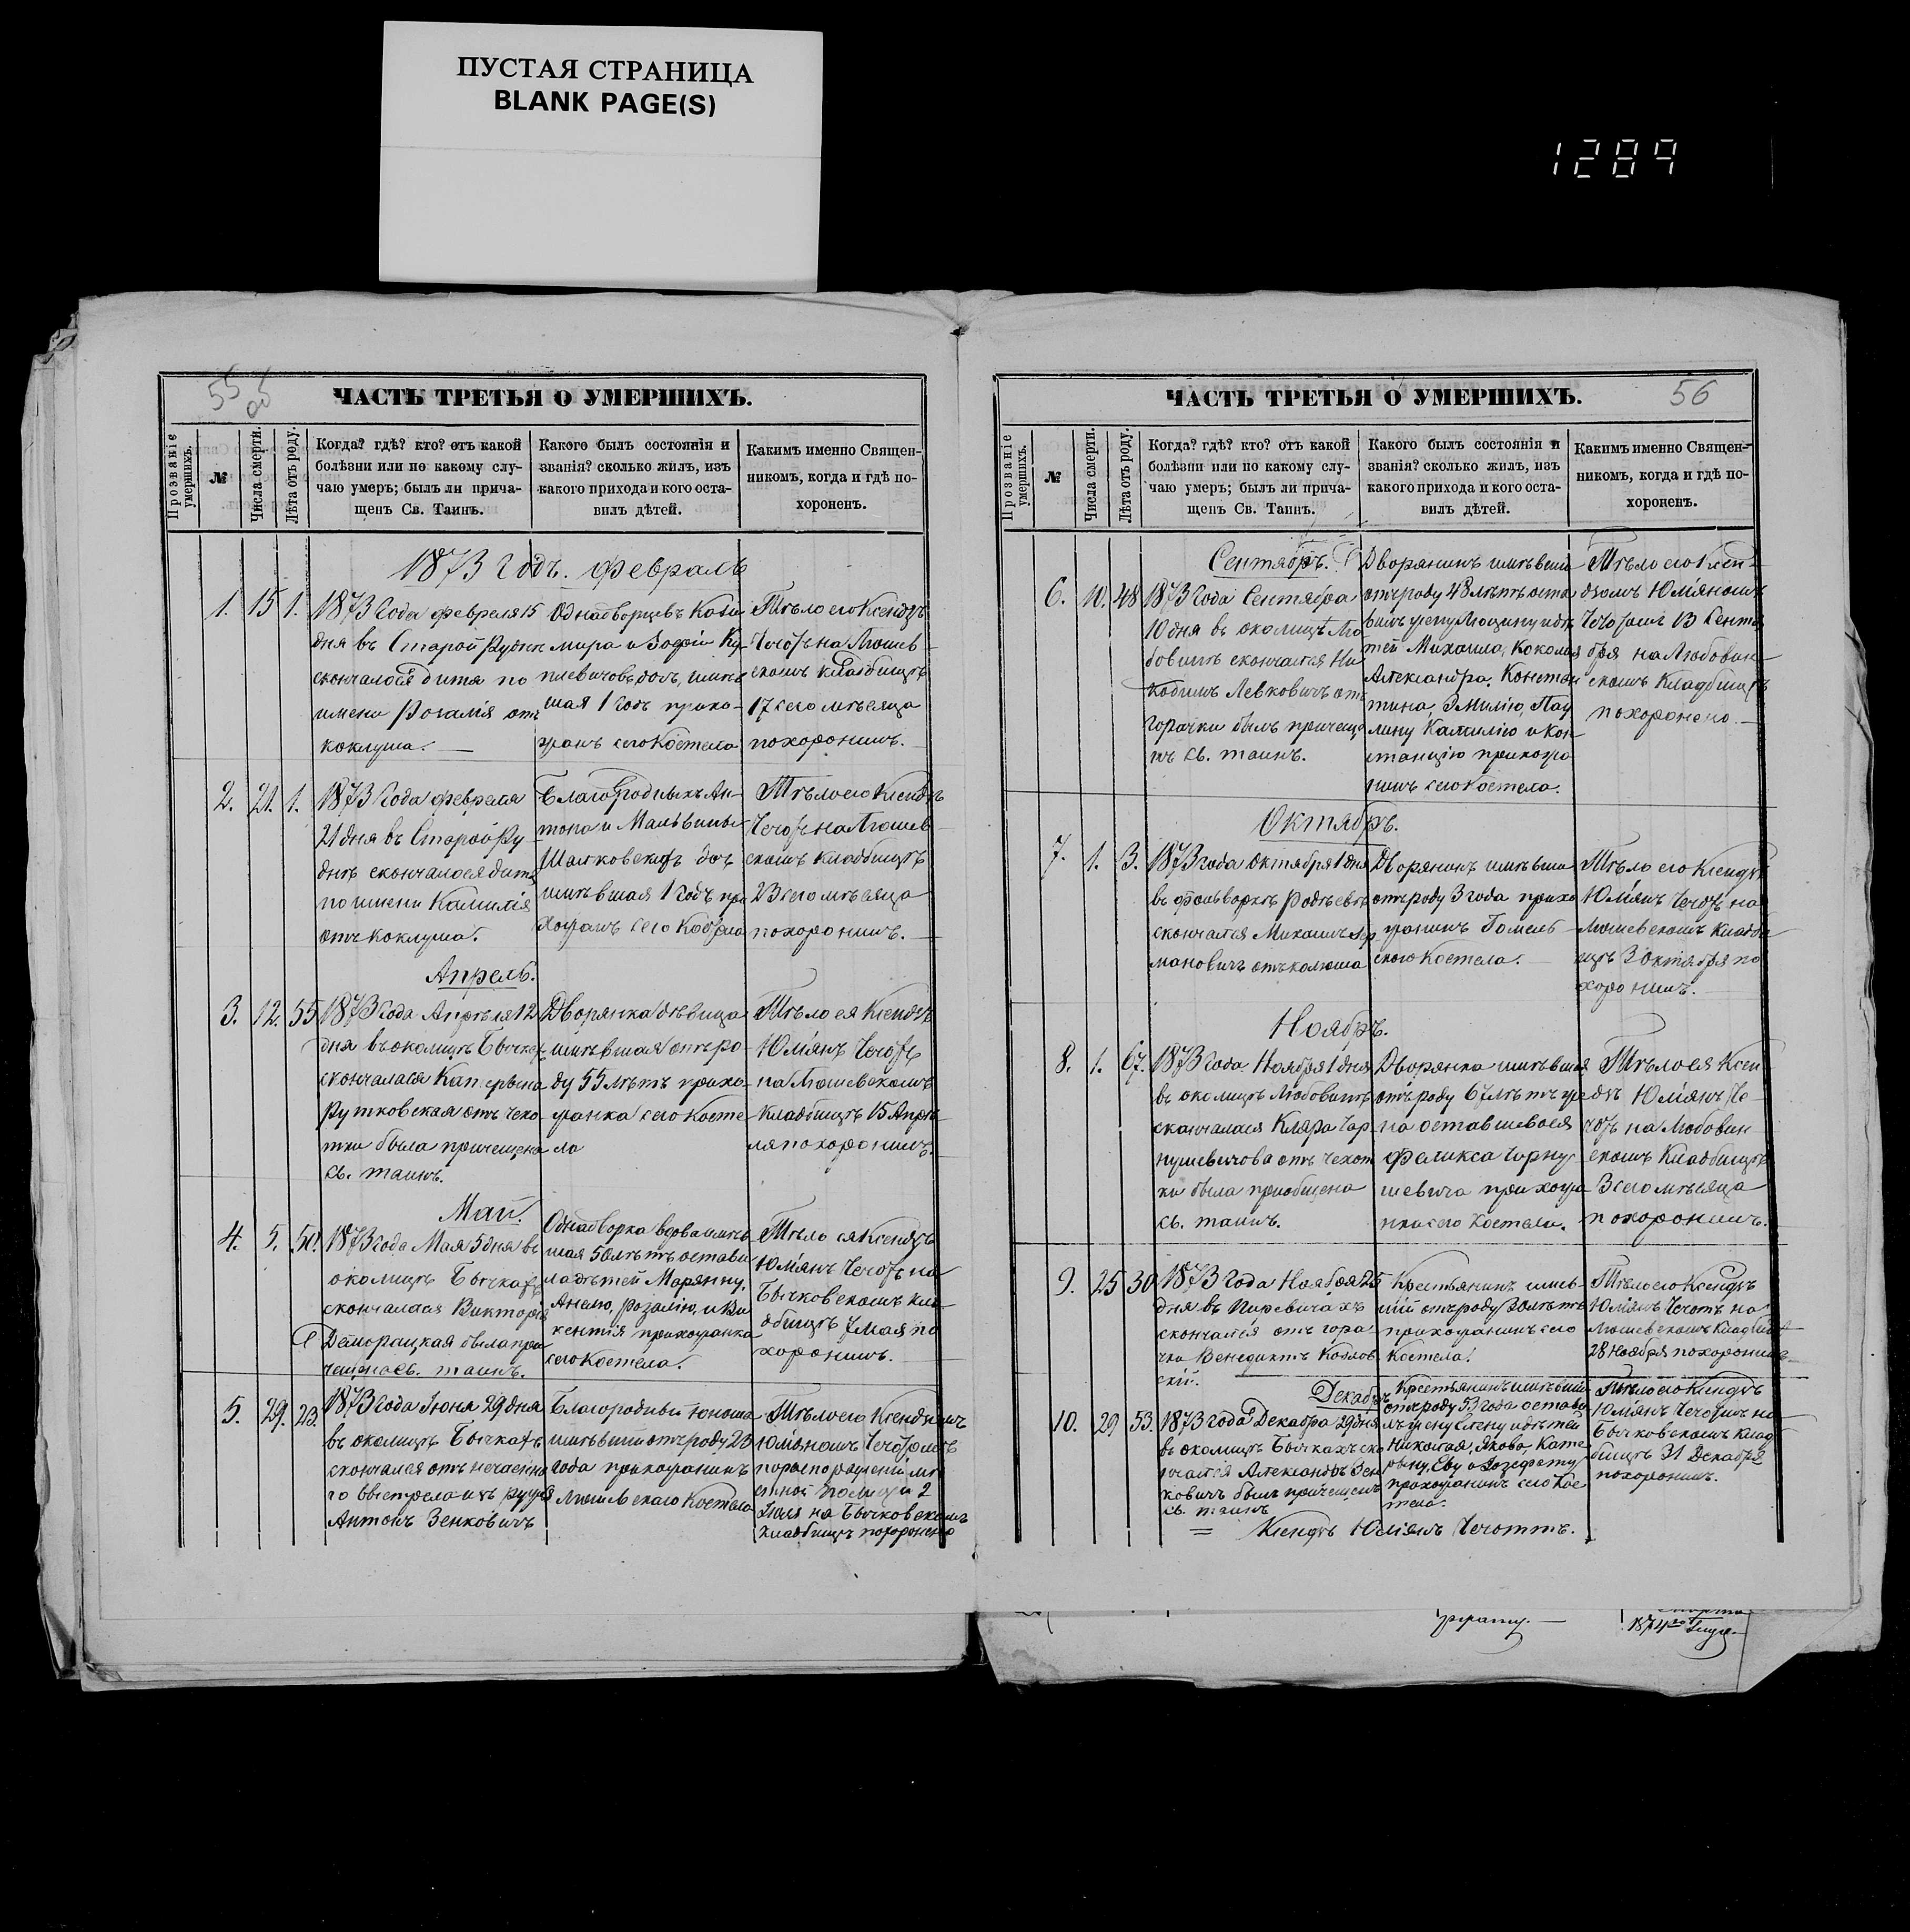 ПУСТАЯ СТРАНИЦА
BLANK PAGE(S)
1289
55
об
ЧАСТЬ ТРЕТЬЯ О УМЕРШИХЪ.
Прозваніе умершихъ.
№
Числа смерти.
Лѣта отъ роду.
Когда? гдѣ? кто? отъ какой
болѣзни или по какому слу-
чаю умеръ; былъ ли прича-
щенъ Св. Таинъ.
Какого былъ состоянія и
званія? сколько жилъ, изъ
какого прихода и кого оста-
вилъ дѣтей.
Какимъ именно Священ-
никомъ, когда и гдѣ по-
хороненъ.
1873 Годъ. Февраль
1. 15 1.
1873 Года февраля 15
дня въ Старой Руднѣ
скончалося дитя по
имени Розалія отъ
коклуша.
Однадворцевъ Кази
мира и Зофіи
дочь, имѣв
шая 1 годъ прихо-
жанъ сего Костела
Тѣло его Ксендзъ
Чечотъ на Люшев-
скомъ кладбищѣ
17 сего мѣсяца
похоронилъ.
2. 21. 1.
1873 Года февраля
21 дня въ Старой Ру
днѣ скончалося дитя
по имени Камилія
отъ коклуша.
Благородныхъ Ан-
тона и Мальвины
дочь
имѣвшая 1 годъ при
хожанъ сего Костела
Тѣло его Ксендзъ
Чечотъ на Люшев
скомъ кладбищѣ
23 сего мѣсяца
похоронилъ.
Апрель.
3. 12. 55
1873 Года Апрѣля 12
дня въ околицѣ Бычкахъ
скончалася
Рутковская отъ чехо-
тки была причещена
св. таинъ.
Дворянка дѣвица
имѣвшая отъ ро-
ду 55 лѣтъ прихо-
жанка сего Косте
ла
Тѣло ея Ксендзъ
Юліянъ Чечотъ
на Люшевскомъ
кладбищѣ 15 Апрѣ
ля похоронилъ.
Май.
4. 5. 50.
1873 года Мая 5 дня въ
околицѣ Бычкахъ
скончалася Викторія
была при
чещена св. таинъ.
Однадворка вдова имѣв
шая 50 лѣтъ остави
ла дѣтей Марянну,
Анелю, Розалію, и Ви
кентія прихожанка
сего Костела.
Тѣло ея Ксендзъ
Юліянъ Чечотъ на
Бычковскомъ кла-
дбищѣ 7 Мая по
хоронилъ.
5. 29. 23.
1873 Года Іюня 29 дня
въ околицѣ Бычкахъ
скончался отъ нечаянна
го выстрела изъ ружья
Антонъ Зенковичъ
Благородный юноша
имѣвшій отъ роду 23
года прихожанинъ
Люшевскаго Костела
Тѣло его Ксендзомъ
Юліяномъ Чечотомъ
по распоряженій мѣ
стной полиціи 2
Іюля на Бычковскомъ
кладбищѣ похоронено
56
ЧАСТЬ ТРЕТЬЯ О УМЕРШИХЪ.
Прозваніе умершихъ.
№
Числа смерти.
Лѣта отъ роду.
Когда? гдѣ? кто? отъ какой
болѣзни или по какому слу-
чаю умеръ; былъ ли прича-
щенъ Св. Таинъ.
Какого былъ состоянія и
званія? сколько жилъ, изъ
какого прихода и кого оста-
вилъ дѣтей.
Какимъ именно Священ-
никомъ, когда и гдѣ по-
хороненъ.
Сентябрь.
6. 10. 48
1873 Года Сентября
10 дня въ околицѣ Лю
бовинѣ скончался Ни
кодимъ Левковичъ отъ
горячки былъ причеще
нъ св. таинъ.
Дворянинъ имѣвшій
отъ роду 48 лѣтъ оста
вилъ жену Люцину и дѣ
тей Михаила, Николая
Александра, Констан
тина, Эмилію, Пау
лину Камилію и Кон
станцію прихожа
нинъ сего Костела.
Тѣло его Ксен-
дзомъ Юліяномъ
Чечотомъ 13 Сентя
бря на Любовин
скомъ Кладбищѣ
похоронено.
Октябрь.
7. 1. 3.
1873 года Октября 1 дня
въ фольваркѣ
скончался Михаилъ Гер
мановичъ отъ
Дворянинъ имѣвшій
отъ роду 3 года прихо
жанинъ Гомель-
скаго Костела.
Тѣло его Ксендзъ
Юліянъ Чечотъ на
Люшевскомъ кладби
щѣ 3 Октября по
хоронилъ.
Ноябрь.
8. 1. 67.
1873 Года Ноября 1 дня
въ околицѣ Любовинѣ
скончалася Кляра Чар
нушевичова отъ чехот
ки была приобщена
св. таинъ.
Дворянка имѣвшая
отъ роду 67 лѣтъ же
на оставшевося
Феликса Чарну
шевича прихожа
нка сего Костела.
Тѣло ея Ксен
дзъ Юліянъ Че-
чотъ на Любовин
скомъ Кладбищѣ
3 сего мѣсяца
похоронилъ.
9. 25 30
1873 Года Ноября 25
дня въ Пиревичахъ
скончался отъ горя
чки Венедиктъ Козлов
скій.
Крестьянинъ имѣв-
шій отъ роду 30 лѣтъ
прихожанинъ сего
Костела.
Тѣло его Ксендзъ
Юліянъ Чечотъ на
Люшевскомъ Кладбищѣ
28 Ноября похоронилъ
Декабрь
10. 29 53.
1873 года Декабря 29 дня
въ околицѣ Бычкахъ ско
нчался Александръ Зен
ковичъ былъ причещенъ
св. таинъ
Крестьянинъ имѣвшій
отъ роду 53 года остави
лъ жену Елену и дѣтей
Николая, Якова, Кате
рину, Еву и Іозефату
прихожанинъ сего Кос
тела.
Тѣло его Ксендзъ
Юліянъ Чечотъ на
Бычковскомъ клад
бищѣ 31 Декабря
похоронилъ.
Ксендзъ Юліянъ Чечоттъ.